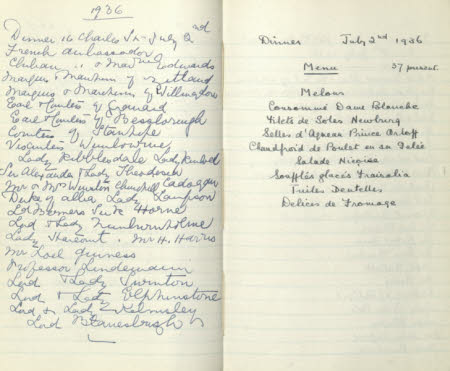 1936
Dinner 16 Charles St July 2nd
French Ambassador
Chilian " & Madme Edwards
Marquis & Marchss of Zetland
Marquis & Marchss of Willingdon
Earl & Countess of
Earl & Countess of Bessborough
Countess of Stanhope
Viscountess Wimborne
Lady Ribblesdale Lady
Sir Alexander & Lady Theodosia Cadogan
Mr & Mrs Winston Churchill
Duke of Alba Lady Lampson
Ld Berners Horne
Lord & Lady
Lady Harcourt. Mr H.
Mr Loel Guiness
Professor Lindemann
Lord & Lady Swinton
Lord & Lady Elphinstone
Lord & Lady Kemsley
Lord
Dinner July 2nd 1936
Menu 37 present.
Melons
Consommé Dame Blanche
Filets de Soles Newburg
Selles d'Agneau Prince Orloff
Chaudfroid de Poulet en sa Gelée
Salade Niçoise
Soufflés glacés
Tuiles Dentelles
Délices de Fromage